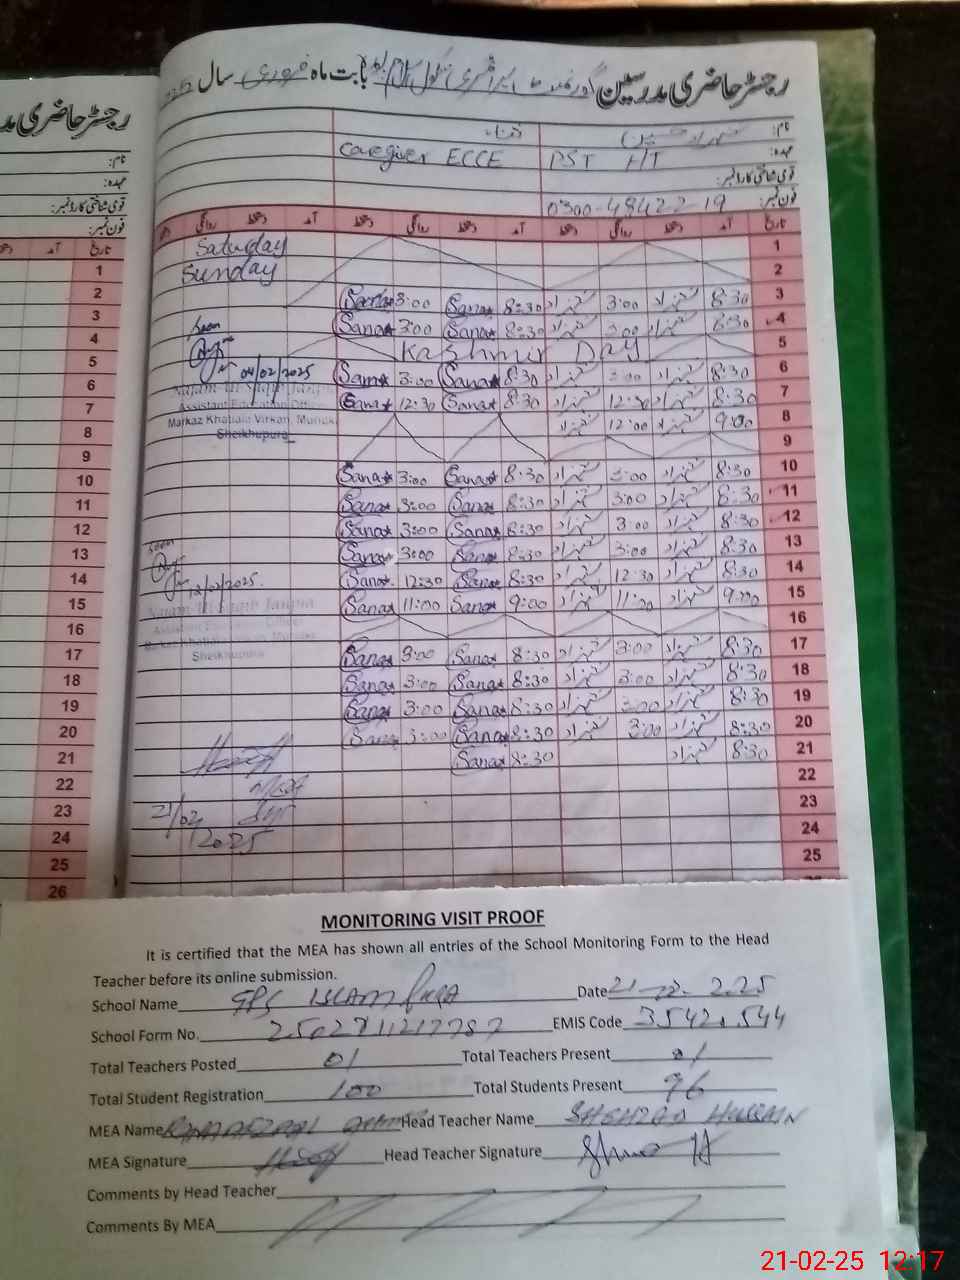 رجسٹر حاضری مدرسین گورنمنٹ پرائمری سکول اسلام پورہ بابت ماہ فروری سال
رجسٹر حاضری مد
نام: شہزاد حسین ثناء
عہدہ: PST HT Caregiver ECCE
قومی شناختی کارڈ نمبر:
فون نمبر: 0300-4842219
نام:
عہدہ:
قومی شناختی کارڈ نمبر:
فون نمبر:
تاریخ آمد دستخط روانگی دستخط آمد دستخط روانگی دستخط آمد دستخط روانگی
تاریخ آمد
Saturday 1
Sunday 2
Sana 3:00 Sana 8:30 شہزاد 3:00 شہزاد 8:30 3
Sana 3:00 Sana 8:30 شہزاد 3:00 شہزاد 8:30 4
Kashmir Day 5
Sana 3:00 Sana 8:30 شہزاد 3:00 شہزاد 8:30 6
Sana 12:30 Sana 8:30 شہزاد 12:30 شہزاد 8:30 7
شہزاد 12:00 شہزاد 9:00 8
9
Sana 3:00 Sana 8:30 شہزاد 3:00 شہزاد 8:30 10
Sana 3:00 Sana 8:30 شہزاد 3:00 شہزاد 8:30 11
Sana 3:00 Sana 8:30 شہزاد 3:00 شہزاد 8:30 12
Sana 3:00 Sana 8:30 شہزاد 3:00 شہزاد 8:30 13
Sana 12:30 Sana 8:30 شہزاد 12:30 شہزاد 8:30 14
Sana 11:00 Sana 9:00 شہزاد 11:00 شہزاد 9:00 15
16
Sana 3:00 Sana 8:30 شہزاد 3:00 شہزاد 8:30 17
Sana 3:00 Sana 8:30 شہزاد 3:00 شہزاد 8:30 18
Sana 3:00 Sana 8:30 شہزاد 3:00 شہزاد 8:30 19
Sana 3:00 Sana 8:30 شہزاد 3:00 شہزاد 8:30 20
Sana 8:30 شہزاد 8:30 21
22
23
24
25
Seen
04/02/2025
Assistant Education Officer
Markaz Khatiala Virkan, Muridke
Sheikhupura
Seen
12/02/2025
Assistant Education Officer
Sheikhupura
MEA
21/02
/2025
1
2
3
4
5
6
7
8
9
10
11
12
13
14
15
16
17
18
19
20
21
22
23
24
25
26
MONITORING VISIT PROOF
It is certified that the MEA has shown all entries of the School Monitoring Form to the Head
Teacher before its online submission.
School Name GPS ISLAM PURA Date 21-02-2025
School Form No. EMIS Code 35420544
Total Teachers Posted 01 Total Teachers Present 01
Total Student Registration 100 Total Students Present 96
MEA Name Head Teacher Name SHEHZAD HUSSAIN
MEA Signature Head Teacher Signature
Comments by Head Teacher
Comments By MEA
21-02-25 12:17